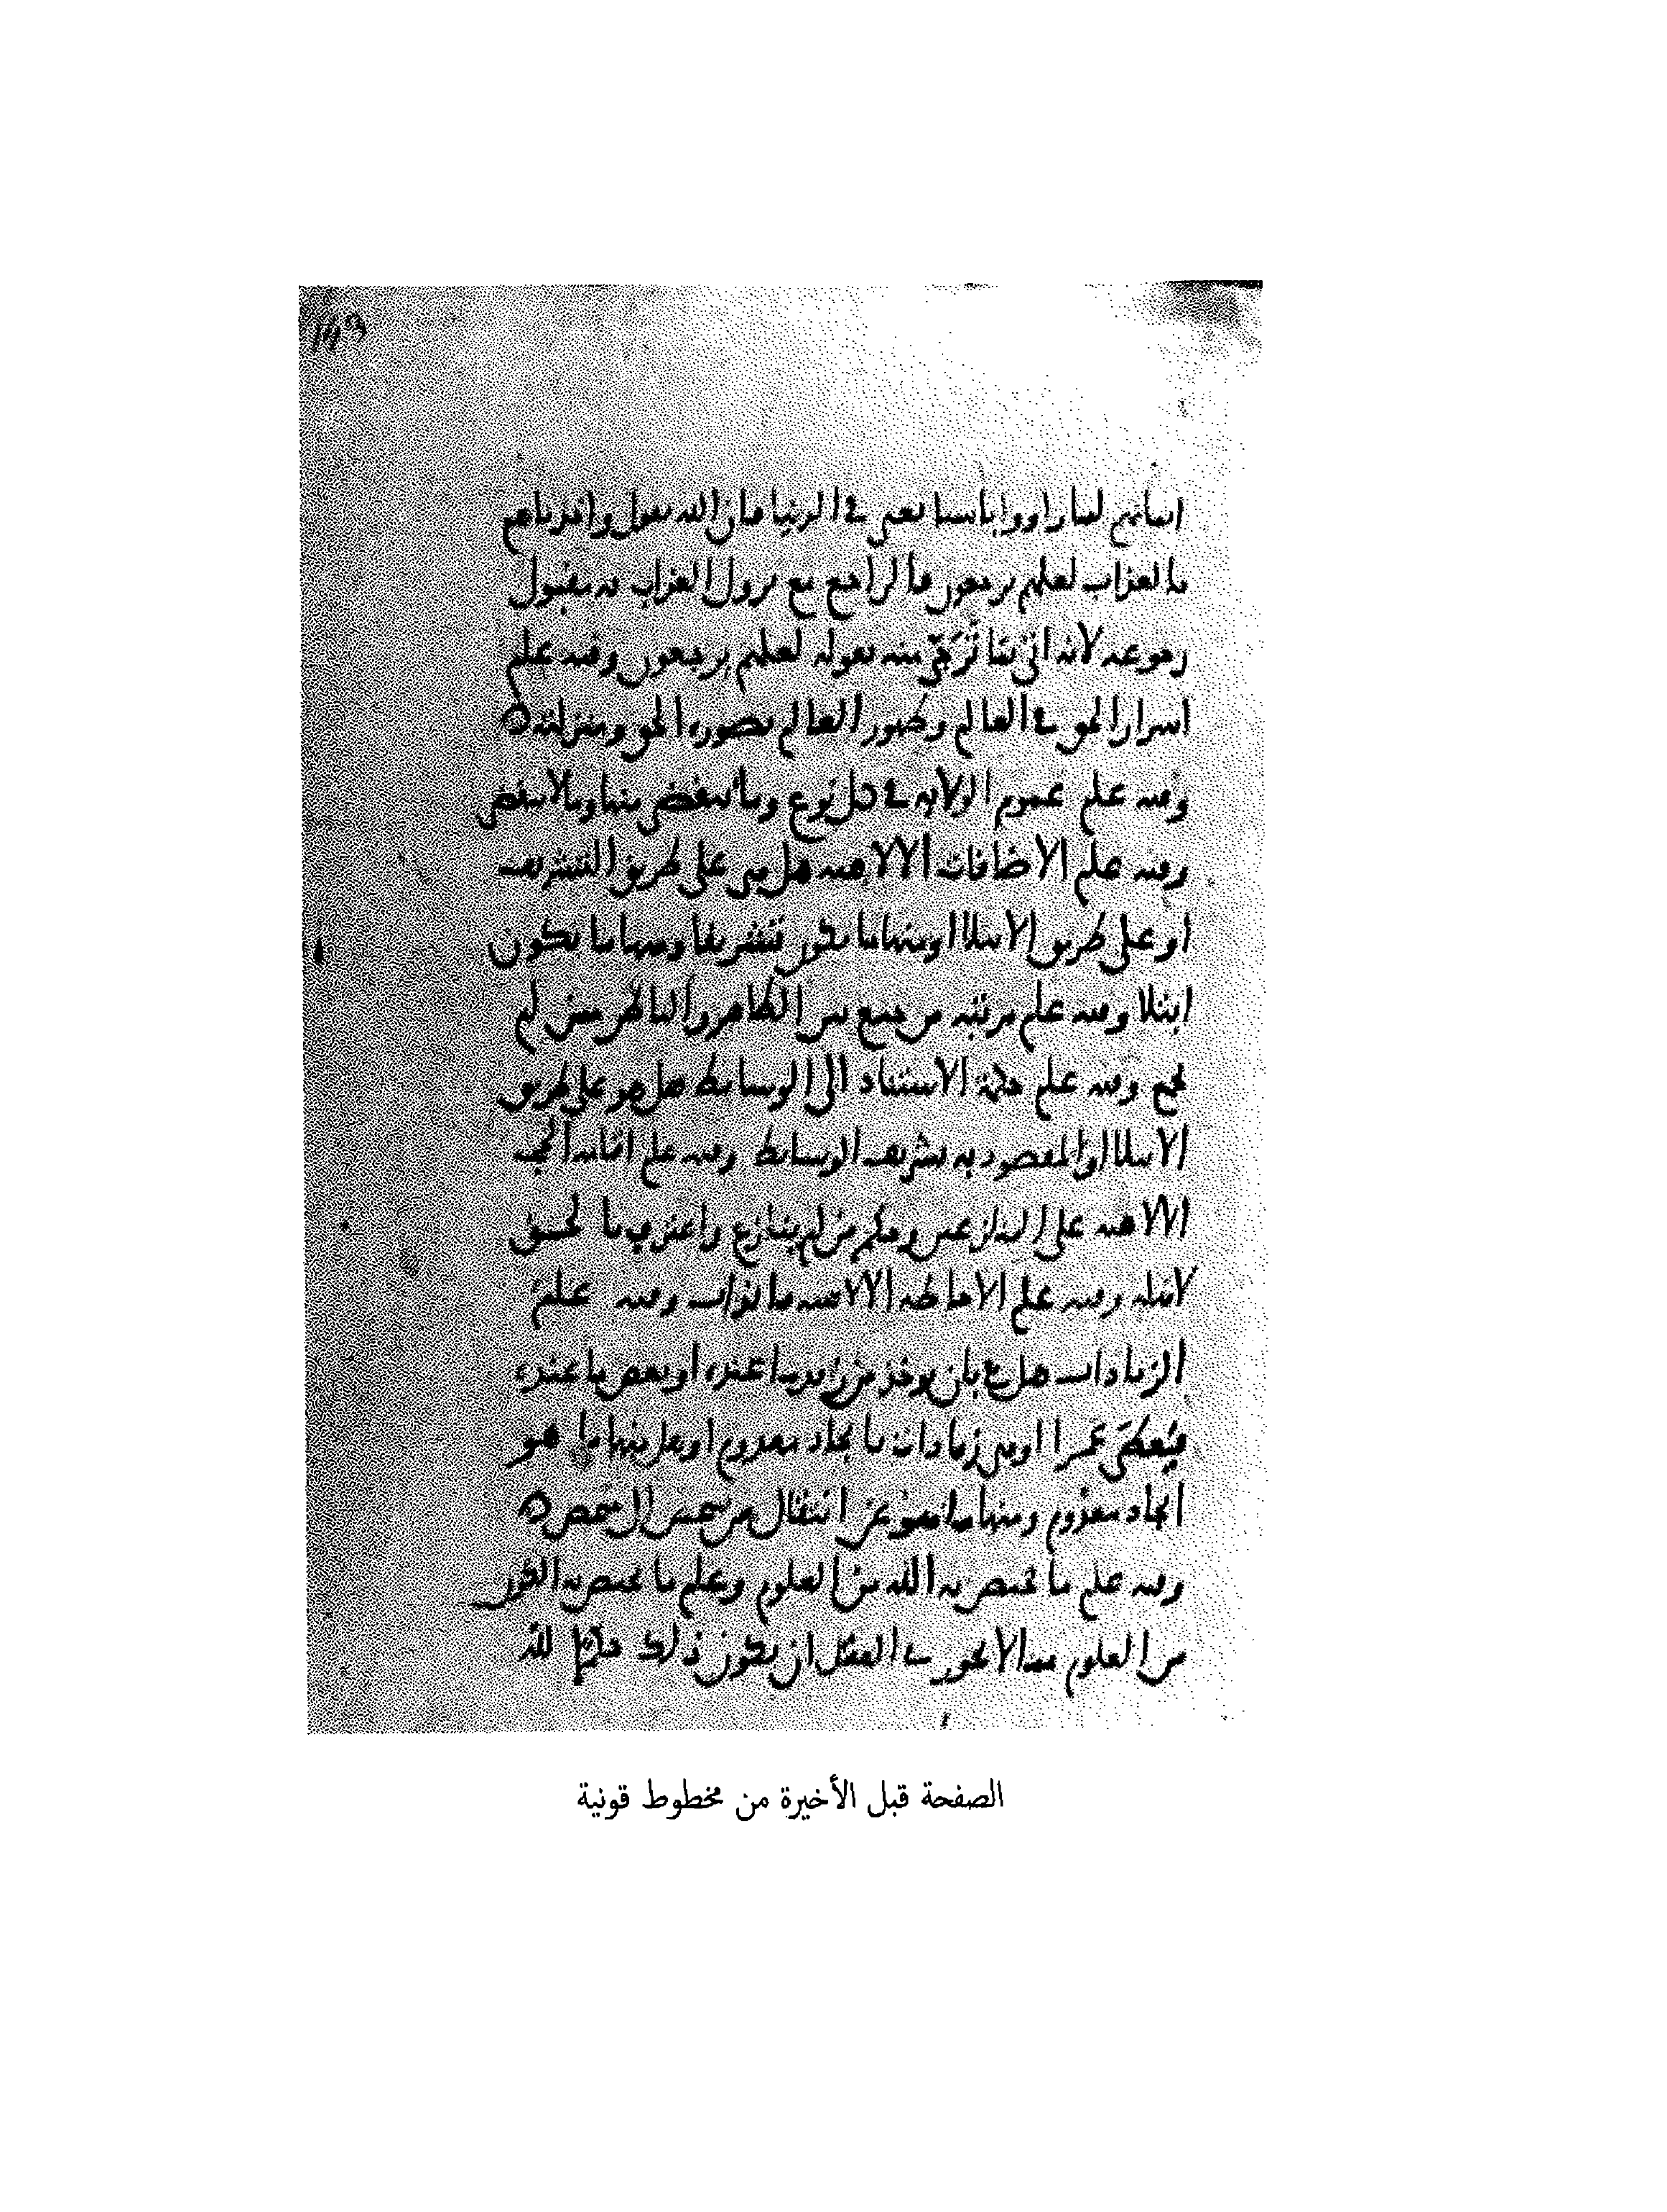 193
ايمانهم لما راوا باسنا نعم في الدنيا فان الله يقول واخذناهم
بالعذاب لعلهم يرجعون فالراجع مع نزول العذاب به مقبول
رجوعه لانه اتى بما ترجى منه بقوله لعلهم يرجعون وفيه علم
اسرار الحق في العالم وظهور العالم بصورة الحق ومنزلته
وفيه علم عموم الولاية في كل نوع وما ينقضي منها وما لا ينقضي
وفيه علم الاضافات الالاهية هل هي على طريق التشريف
او على طريق الابتلا او منها ما يكون تشريفا ومنها ما يكون
ابتلا وفيه علم مرتبة من جمع بين الظاهر والباطن ممن لم
يجمع وفيه علم حكمة الاستناد الى الوسايط هل هو على طريق
الابتلا او المقصود به تشريف الوسايط وفيه علم اقامة الحجة
الالاهية على المنازعين وحكم من لم ينازع واعترف بالحق
لاهله وفيه علم الاحاطة الالاهية بالذوات وفيه علم
الزيادات هل هي بان يوخذ من زيد ما عنده او بعض ما عنده
فيعطى عمرا او هي زيادات بايجاد معدوم او هل منها ما هو
ايجاد معدوم ومنها ما هو عن انتقال من شخص الى شخص
وفيه علم ما يختص به الله من العلوم وعلم ما يختص به الكون
من العلوم مما لا يجوز في العقل ان يكون ذلك حكم لله
الصفحة قبل الأخيرة من مخطوط قونية